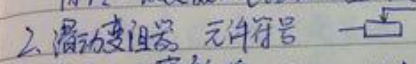 2、滑动变阻器 元件符号